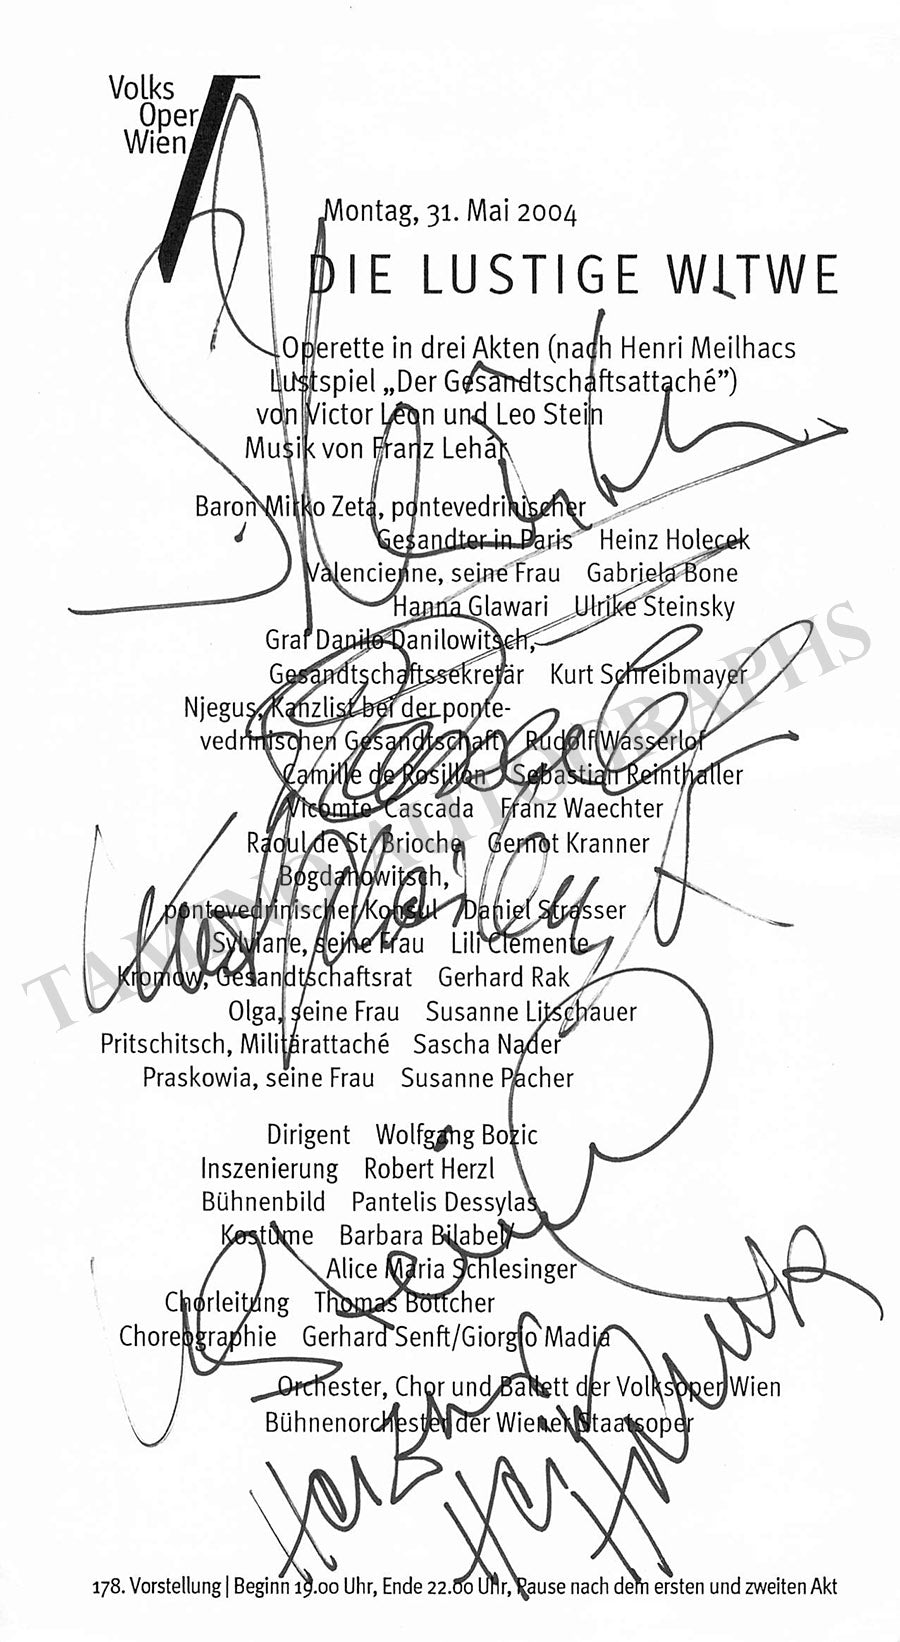 Volks
Oper
Wien
Montag, 31. Mai 2004
DIE LUSTIGE WITWE
Operette in drei Akten (nach Henri Meilhacs
Lustspiel „Der Gesandtschaftsattaché”)
von Victor Léon und Leo Stein
Musik von Franz Lehár
Baron Mirko Zeta, pontevedrinischer
Gesandter in Paris Heinz Holecek
Valencienne, seine Frau Gabriela Bone
Hanna Glawari Ulrike Steinsky
Graf Danilo Danilowitsch,
Gesandtschaftssekretär Kurt Schreibmayer
Njegus, Kanzlist bei der ponte-
vedrinischen Gesandtschaft Rudolf Wasserlof
Camille de Rosillon Sebastian Reinthaller
Vicomte Cascada Franz Waechter
Raoul de St. Brioche Gernot Kranner
Bogdanowitsch,
pontevedrinischer Konsul Daniel Strasser
Sylviane, seine Frau Lili Clemente
Kromow, Gesandtschaftsrat Gerhard Rak
Olga, seine Frau Susanne Litschauer
Pritschitsch, Militärattaché Sascha Nader
Praskowia, seine Frau Susanne Pacher
Dirigent Wolfgang Bozic
Inszenierung Robert Herzl
Bühnenbild Pantelis Dessylas
Kostüme Barbara Bilabel/
Alice Maria Schlesinger
Chorleitung Thomas Böttcher
Choreographie Gerhard Senft/Giorgio Madia
Orchester, Chor und Ballett der Volksoper Wien
Bühnenorchester der Wiener Staatsoper
178. Vorstellung | Beginn 19.00 Uhr, Ende 22.00 Uhr, Pause nach dem ersten und zweiten Akt
TAMINO AUTOGRAPHS